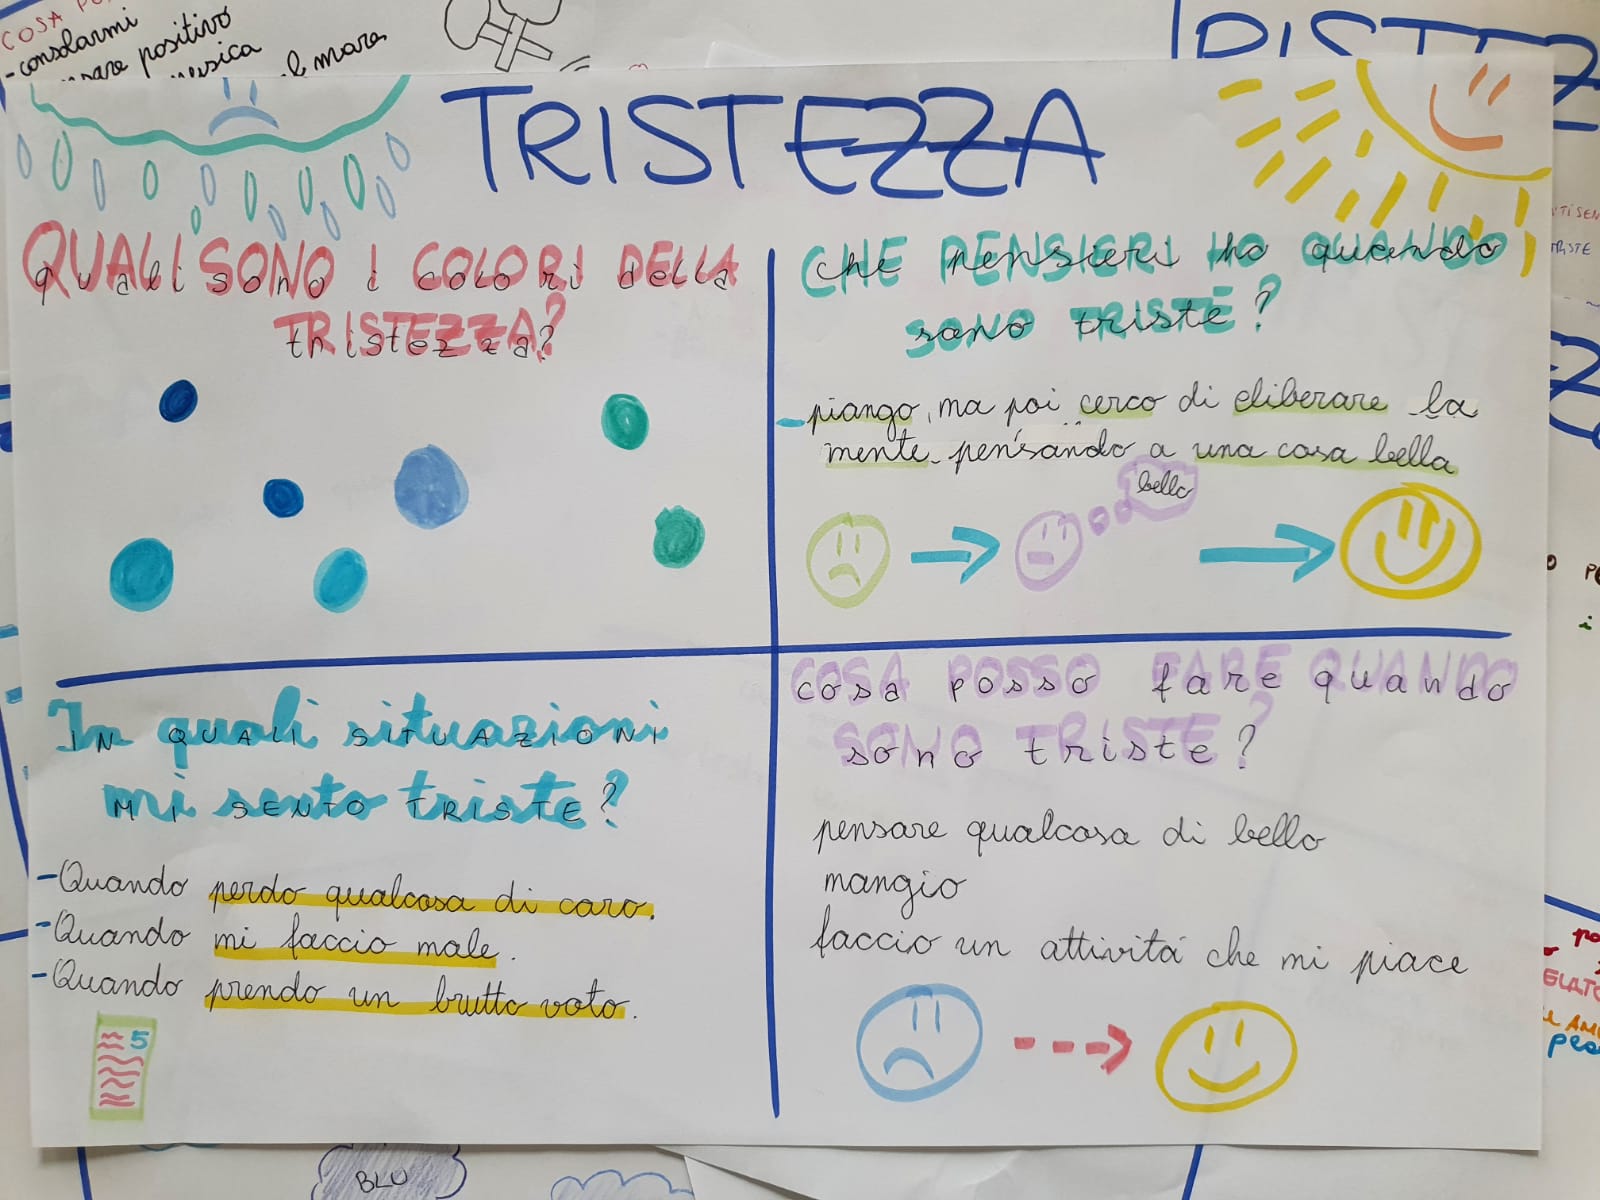 COSA
-consolarmi
positivo
musica
l mare
TRISTEZZA
QUALI SONO I COLORI DELLA
TRISTEZZA?
CHE PENSIERI HO QUANDO
SONO TRISTE?
bello
- piango, ma poi cerco di eliberare la
mente pensando a una cosa bella
In quali situazioni
mi sento triste?
- Quando perdo qualcosa di caro.
- Quando mi faccio male.
- Quando prendo un brutto voto.
5
COSA POSSO FARE QUANDO
SONO TRISTE?
pensare qualcosa di bello
mangio
faccio un attività che mi piace
TRISTE
BLU